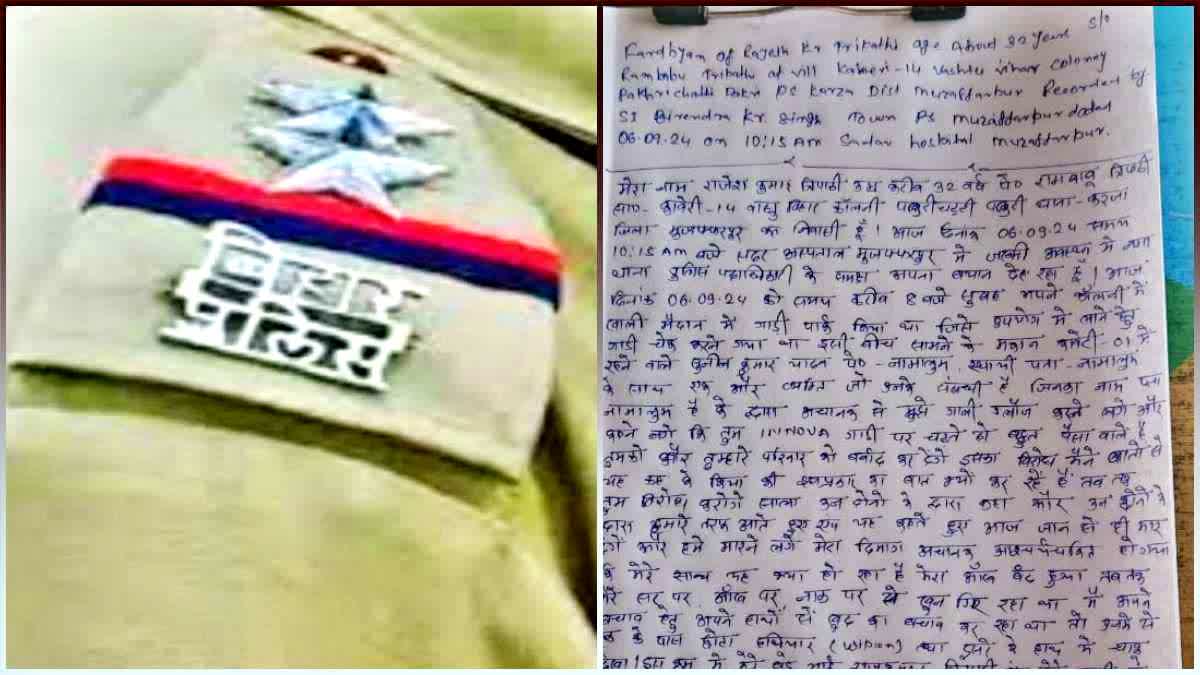 बिहार
पुलिस
Fardbyan of Rajesh Kr Tripathi age About 32 Years S/o
Rambabu Tripathi at Vill Kaveri-14 Vastu Vihar Colony
PS Karza Dist Muzaffarpur Recorded by
SI Birendra Kr Singh Town PS Muzaffarpur dated
06.09.24 on 10:15 AM Sadar hospital Muzaffarpur.
मेरा नाम राजेश कुमार त्रिपाठी उम्र करीब 32 वर्ष पे० रामबाबू त्रिपाठी
सा०- कावेरी-14 वास्तु विहार कॉलनी थाना- करजा
जिला मुजफ्फरपुर का निवासी हूँ। आज दिनांक 06.09.24 समय
10:15 AM बजे सदर अस्पताल मुजफ्फरपुर में जख्मी अवस्था में नगर
थाना पुलिस पदाधिकारी के समक्ष अपना बयान दे रहा हूँ। आज
दिनांक 06.09.24 को समय करीब 8 बजे सुबह अपने कॉलनी में
खाली मैदान में गाड़ी पार्क किया था जिसे उपयोग में लाने हेतु
गाड़ी चेक करने गया था इसी बीच सामने के मकान कावेरी-01 में
रहने वाले सुनील कुमार यादव पे०-नामालूम, स्थायी पता-नामालुम
के साथ एक और व्यक्ति जो उनके संबंधी है जिनका नाम पता
नामालुम है के द्वारा अचानक से मुझे गाली गलौज करने लगे और
कहने लगे कि तुम INNOVA गाड़ी पर चढ़ते हो बहुत पैसा वाले है
तुमको और तुम्हारे परिवार को बर्बाद कर देंगे इसका विरोध मैंने
यह कह के किया की इसप्रकार का बात क्यों कर रहे हैं तब तक
तुम विरोध करोगे साला उन दोनो के द्वारा कहा और उन दोनो के
द्वारा हमारे तरफ आते हुए एवं यह कहते हुए आज जान से ही मार
देंगे और हमे मारने लगे मेरा दिमाग अचानक आश्चर्यचकित हो गया
कि मेरे साथ यह क्या हो रहा है मेरा आँख बंद हुआ तब तक
मेरे सर पर, आँख पर, नाक पर से खून गिर रहा था मैं अपने
बचाव हेतु अपने हाथों से खुद का बचाव कर रहा था तो उनमे से
एक के पास छोटा हथियार था दूसरे के हाथ में चाकू